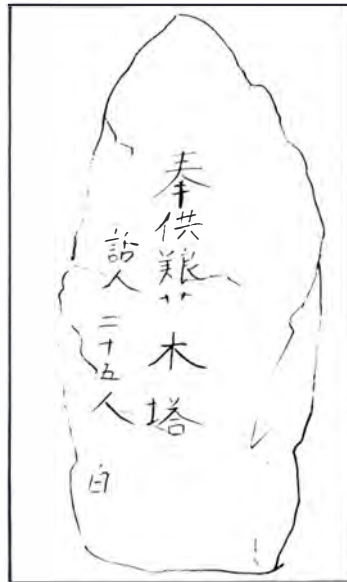 奉供養艹木塔
話人 二十五人 白